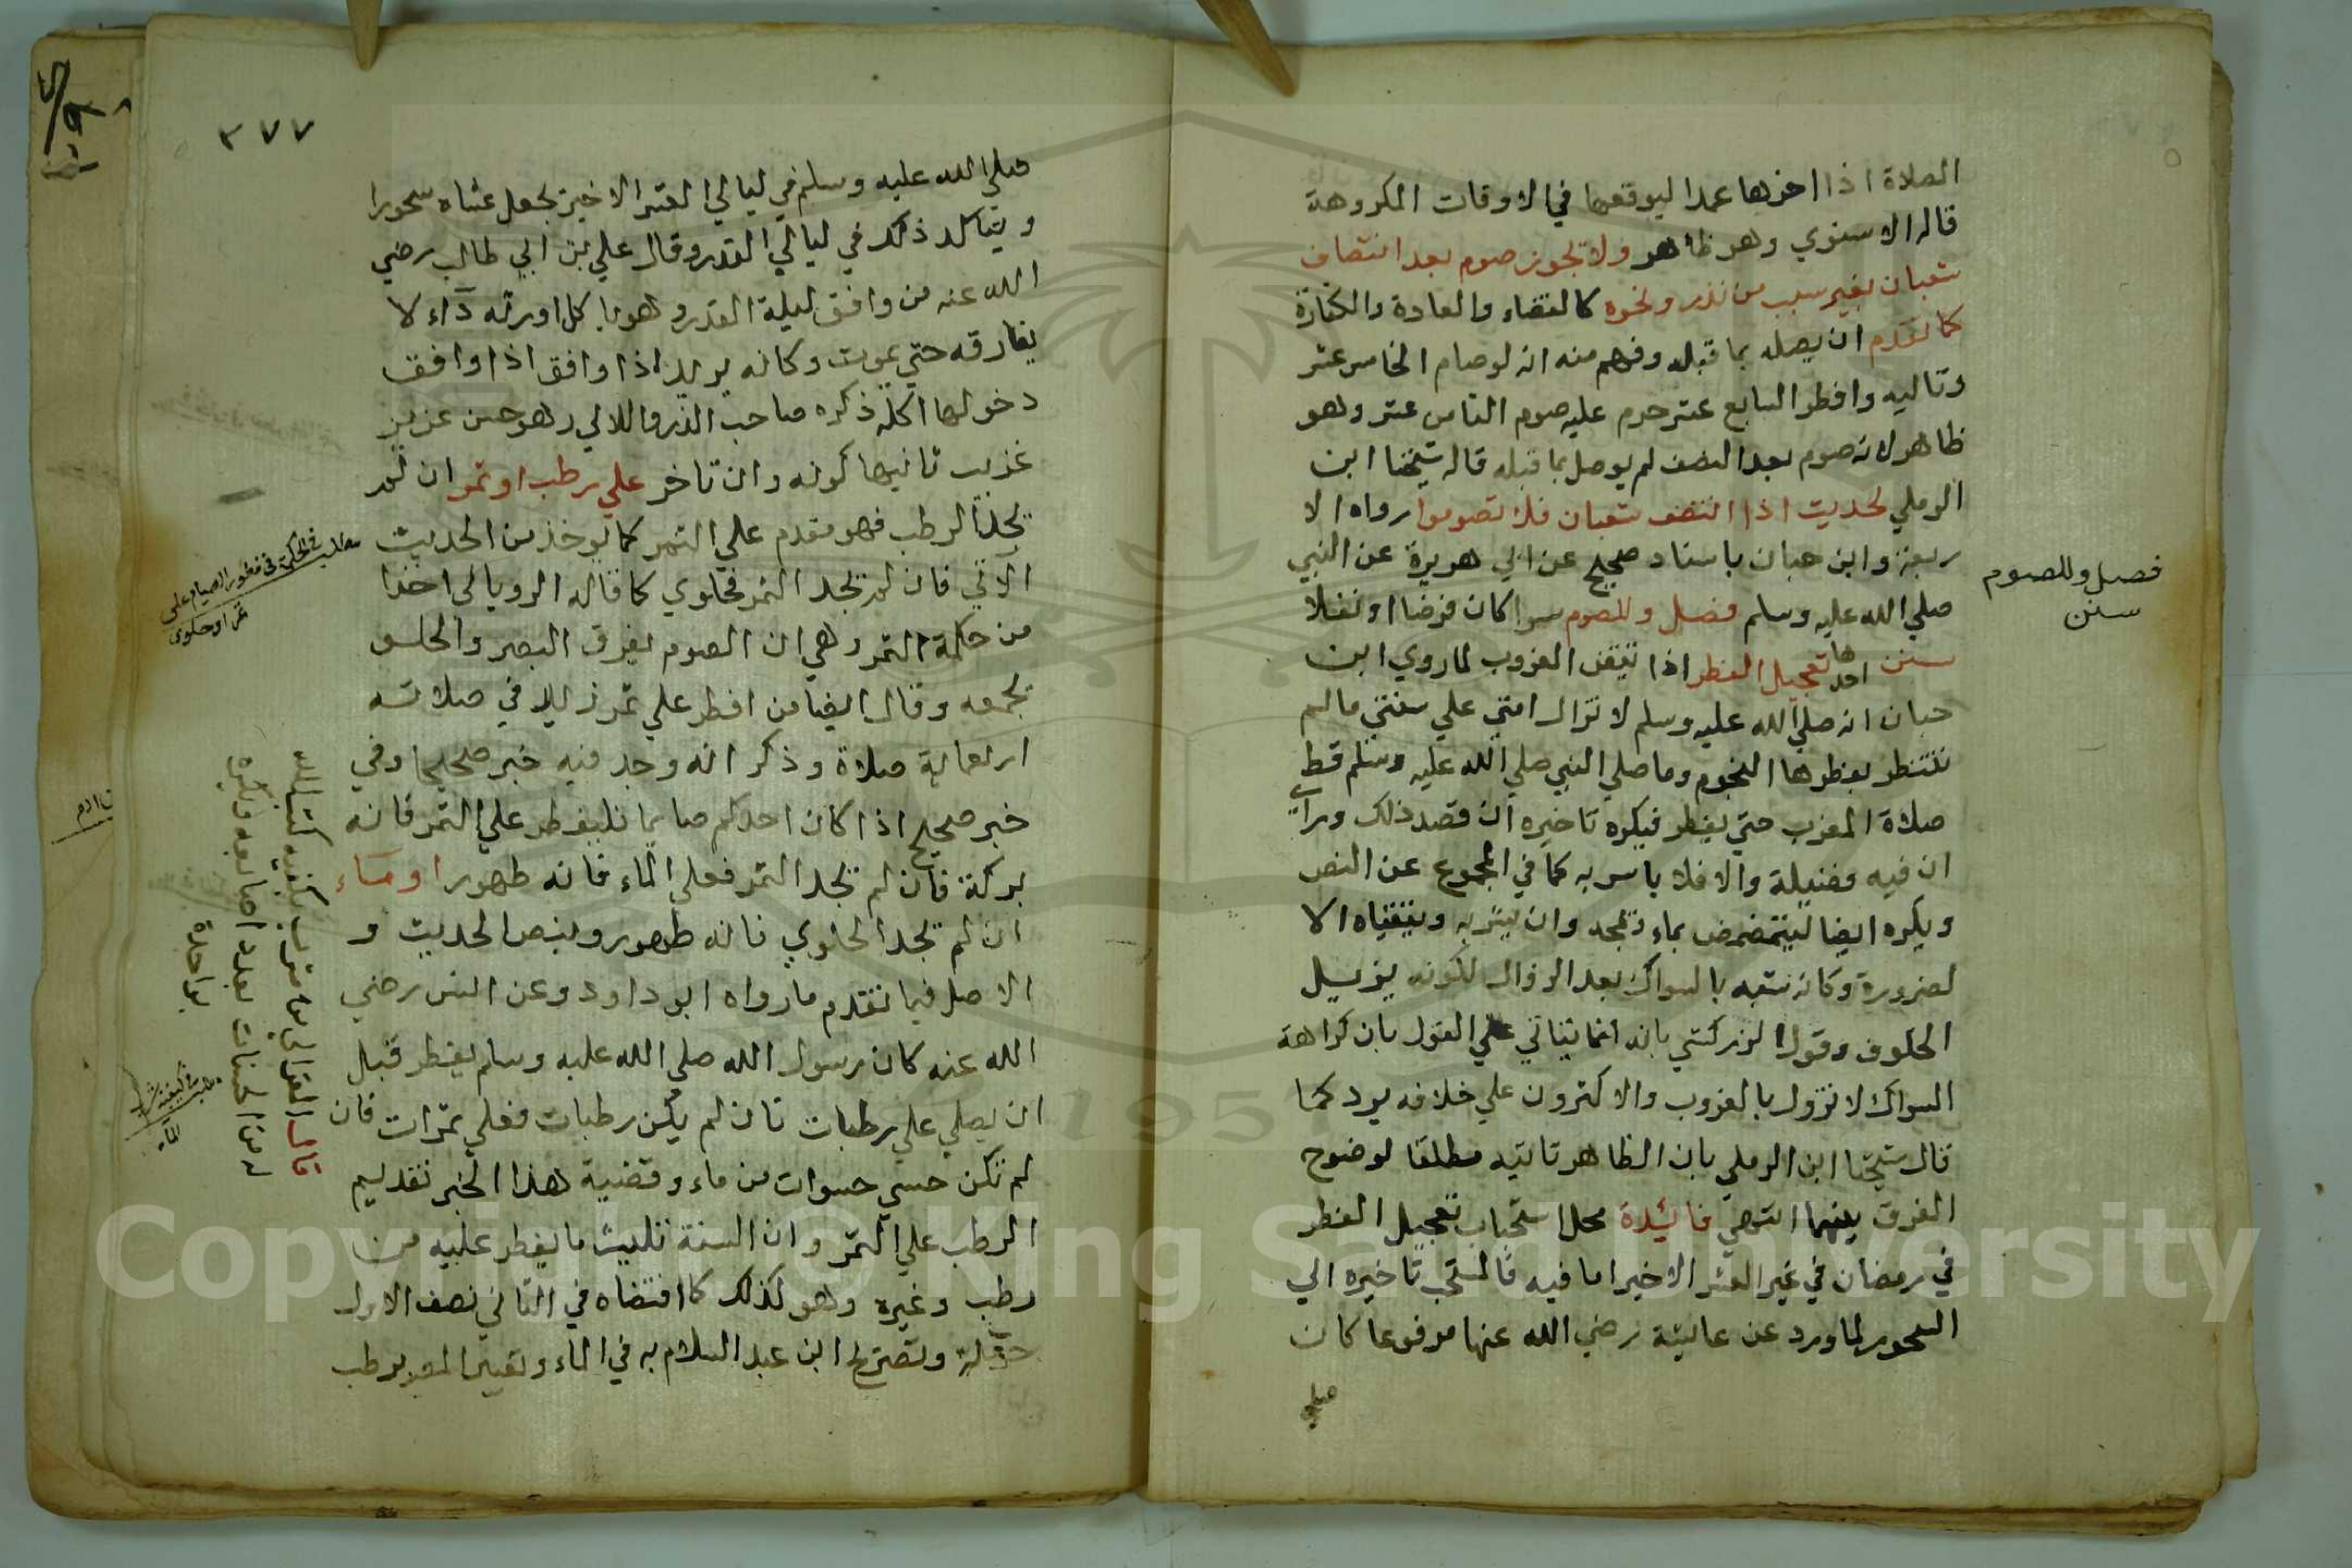 الصلاة اذا اخرها عمدا ليوقعها في الاوقات المكروهة
قاله الاسنوي وهو ظاهر ولا يجوز صوم بعد انتصاف
شعبان بغير سبب من نذر ونحوه كالقضاء والعادة والكفارة
كما تقدم ان يصله بما قبله وفهم منه انه لو صام الخامس عشر
وتاليه وافطر السابع عشر حرم عليه صوم الثامن عشر وهو
ظاهر لانه صوم بعد النصف لم يوصل بما قبله قاله شيخنا ابن
الرملي لحديث اذا انتصف شعبان فلا تصوموا رواه الا
ربعة وابن حبان باسناد صحيح عن ابي هريرة عن النبي
صلي الله عليه وسلم فصل وللصوم سوا كان فرضا او نفلا
سنن احدها تعجيل الفطر اذا تيقن الغروب لما روي ابن
حبان انه صلي الله عليه وسلم لا تزال امتي علي سنتي مالم
تنتظر بفطرها النجوم وما صلي النبي صلي الله عليه وسلم قط
صلاة المغرب حتي يفطر فيكره تاخيره ان قصد ذلك وراي
ان فيه فضيلة والا فلا باس به كما في المجموع عن النص
ويكره ايضا ليتمضمض بماء ويمجه وان يشربه ويتقياه الا
لضرورة وكانه شبه بالسواك بعد الزوال لكونه يزيل
الخلوف وقول الزركشي بانه انما يتاتي علي القول بان كراهة
السواك لا تزول بالغروب والاكثرون علي خلافه يرد كما
قال شيخنا ابن الرملي بان الظاهر تاتيه مطلقا لوضوح
الفرق بينهما انتهي فائدة محل استحباب تعجيل الفطر
في رمضان في غير العشر الاخير اما فيه فالمستحب تاخيره الي
السحور لما ورد عن عايشة رضي الله عنها مرفوعا كان
صلي
فصل وللصوم
سنن
٣٧٧
صلي الله عليه وسلم في ليالي العشر الاخير يجعل عشاه سحورا
ويتاكد ذلك في ليالي القدر وقال علي بن ابي طالب رضي
الله عنه من وافق ليلة القدر وهو ياكل اورثه دآء لا
يفارقه حتي يموت وكانه يريد اذا وافق اذا وافق
دخولها اكله ذكره صاحب الدر واللالي وهو حسن عزيز
غريب ثانيها كونه وان تاخر علي رطب او تمر ان لم
يجد الرطب فهو مقدم علي التمر كما يوخذ من الحديث
الآتي فان لم يجد التمر فحلوي كما قاله الروياني اخذا
من حكمة التمر وهي ان الصوم يفرق البصر والحلو
يجمعه وقال ايضا من افطر علي تمر زيد في صلاته
اربعماية صلاة وذكر انه وجد فيه خبر صحيحا وفي
خبر صحيح اذا كان احدكم صايما فليفطر علي التمر فانه
بركة فان لم يجد التمر فعلي الماء فانه طهور او ماء
ان لم يجد الحلوي فانه طهور وبنص الحديث و
الاصل فيما تقدم ما رواه ابو داود وعن انس رضي
الله عنه كان رسول الله صلي الله عليه وسلم يفطر قبل
ان يصلي علي رطبات فان لم يكن رطبات فعلي تمرات فان
لم تكن حسي حسوات من ماء وقضية هذا الخبر تقديم
الرطب علي التمر وان السنة تثليث ما يفطر عليه من
رطب وغيره وهو كذلك كما اقتضاه في الثاني نصف الاول
حرملة وتصريح ابن عبد السلام به في الماء وتعبير المص برطب
مطلب في الحكمة في فطور الصيام علي
تمر او حلوي